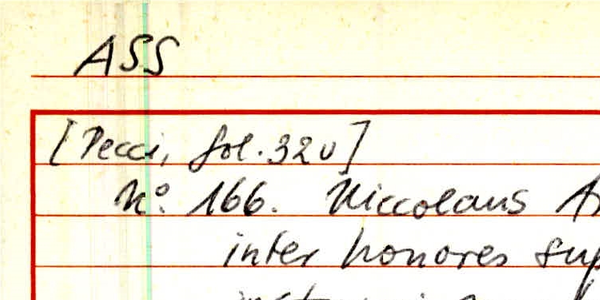 ASS
[Pecci, fol. 32v]
N° 166. Niccolaus
inter honores